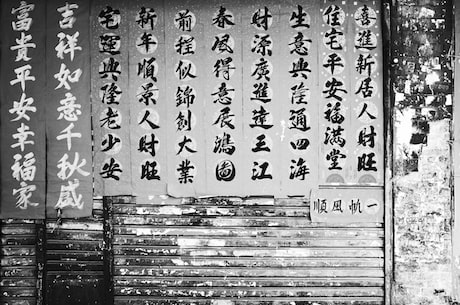 喜進新居人財旺
住宅平安福滿堂
生意興隆通四海
財源廣進達三江
春風得意展鴻圖
前程似錦創大業
新年順景人財旺
宅運興隆老少安
吉祥如意千秋盛
富貴平安幸福家
一帆風順